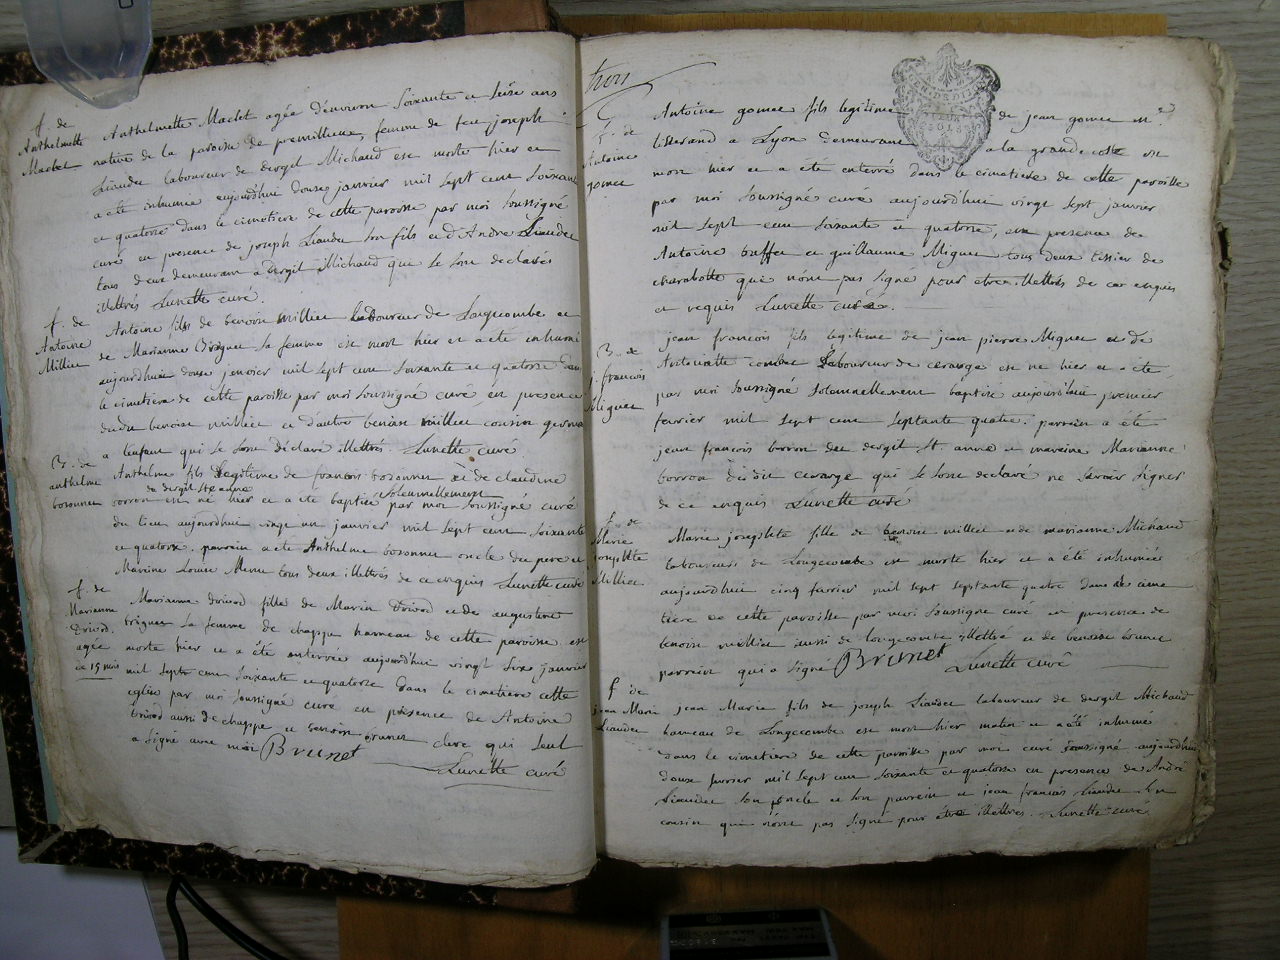 f. de
Anthelmette
Maclet
Anthelmette Maclet agée d'environ soixante et seise ans
native de la paroise de premillieu, femme de feu joseph
Liaudet laboureur de dergit Michaud est morte hier et
a eté inhumee aujourd'hui douze janvier mil sept cent soixante
et quatorse dans le cimetiere de cette paroisse par moi soussigné
curé en presence de joseph Liaudet son fils et d'André Liaudet
tous deux demeurant a dergit Michaud que se sont declarés
illettrés Lunette curé.
f. de
Antoine
Milliet
Antoine fils de benoit milliet laboureur de Longecombe et
de Marianne Miguet sa femme est mort hier et a eté inhumé
aujourdhui douse janvier mil sept cent soixante et quatorse dans
le cimetiere de cette paroisse par moi soussigné curé en presence
dudit benoit milliet et d'autre benoit milliet cousin germain
a l'enfant qui se sont déclaré illettrés. Lunette curé
B. de
anthelme
bosonnet
Anthelme fils legitime de francois bosonnet et de claudine
de dergit Ste anne
borron est ne hier et a ete baptisé solennellement par moi soussigné curé
du lieu aujourdhui vingt un janvier mil sept cent soixante
et quatorse. parrein a ete Anthelme bosonnet oncle du pere et
Mareine Louise tous deux illettrés de ce enquis Lunette curé
f. de
Marianne
Drivod.
agée
de 15 mois
Marianne drivod fille de Marin Drivod et de augustine
triguet sa femme de chappe hameau de cette paroisse est
morte hier et a été enterrée aujourd'hui vingt six janvier
mil septe cent soixante et quatorse dans le cimetiere cette
eglise par moi soussigné curé en présence de Antoine
Drivod aussi de chappe et benoit brunet clerc qui seul
a signé avec moi Brunet
Lunette curé
trois
f. de
Antoine
gomet
Antoine gomet fils legitime de jean gomet mtre
tisserand a Lyon demeurant a la grande coste est
mort hier et a été enterré dans le cimetiere de cette paroisse
par moi soussigné curé aujourd'hui vingt sept janvier
mil sept cent soixante et quatorse, en presence de
Antoine buffet et guillaume Miguet tous deux tissier de
charabotte qui n'ont pas signé pour etre illettrés de ce enquis
et requis Lunette curé.
B. de
j. francois
Miguet
jean francois fils legitime de jean pierre Miguet et de
Antoinette combet laboureur de cerarge est né hier et a eté
par moi soussigné solemnellement baptisé aujourd'hui premier
fevrier mil sept cent septante quatre. parrein a été
jean francois borron du dergit St. anne et mareine Marianne
borron du dit cerarge qui se sont declaré ne savoir signer
de ce enquis Lunette curé
f. de
Marie
josephte
Milliet.
Marie josephte fille de benoit milliet et de marianne Michaud
laboureurs de Longecombe est morte hier et a été inhumée
aujourdhui cinq fevrier mil sept septante quatre dans le cime
tiere de cette paroisse par moi soussigné curé en presence de
benoit milliet aussi de longecombe illettré et de benoit brunet
parrein qui a signé Brunet
Lunette curé
f de
jean Marie
Liaudet
jean Marie fils de joseph Liaudet laboureur de dergit Michaud
hameau de Longecombe est mort hier matin et a été inhumé
dans le cimetiere de cette paroisse par moi curé soussigné aujourdhui
douze fevrier mil sept cent soixante et quatorse en presence de André
Liaudet son oncle et son parrein et jean francois Liaudet son
cousin qui n'ont pas signé pour être illettrés. Lunette curé